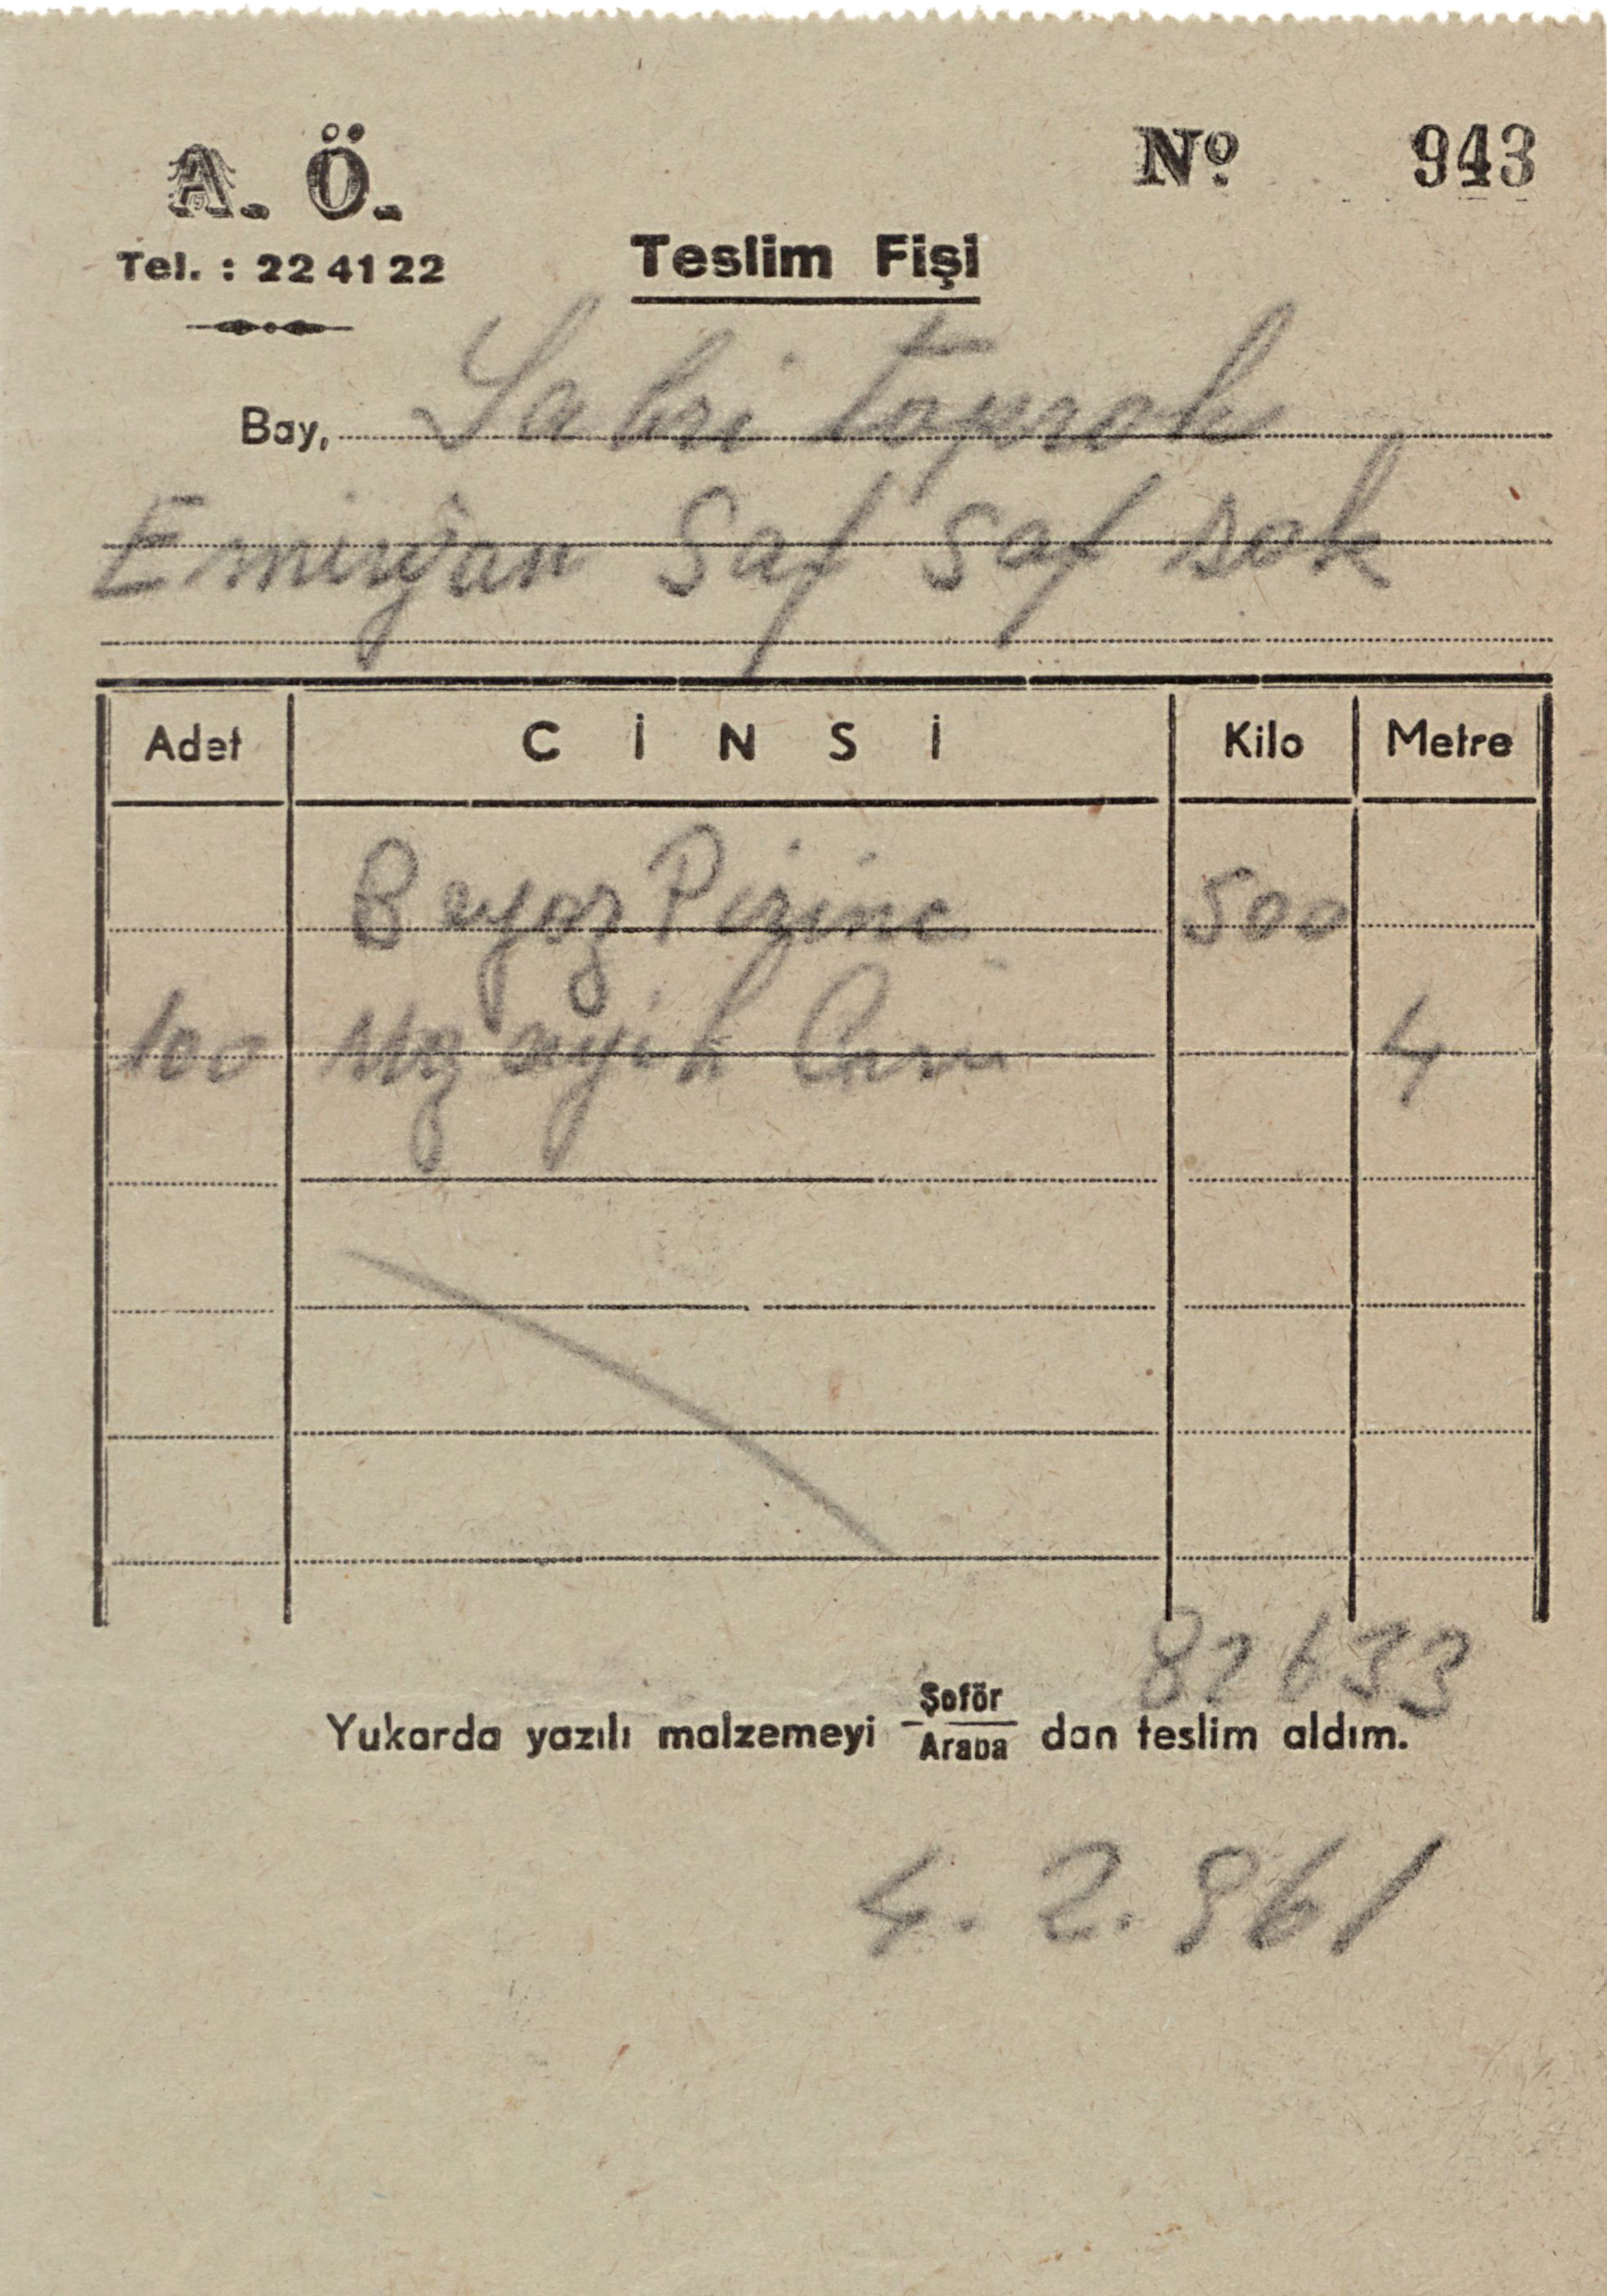 A. Ö.
Nº 943
Tel. : 22 41 22
Teslim Fişi
Bay, Sabri Toprak
Emirğan Saf Saf sok
Adet CİNSİ Kilo Metre
Beyaz Pirinc 500
100 Mozayik Çini 4
82633
Yukarda yazılı malzemeyi Şoför / Araba dan teslim aldım.
4. 2. 961